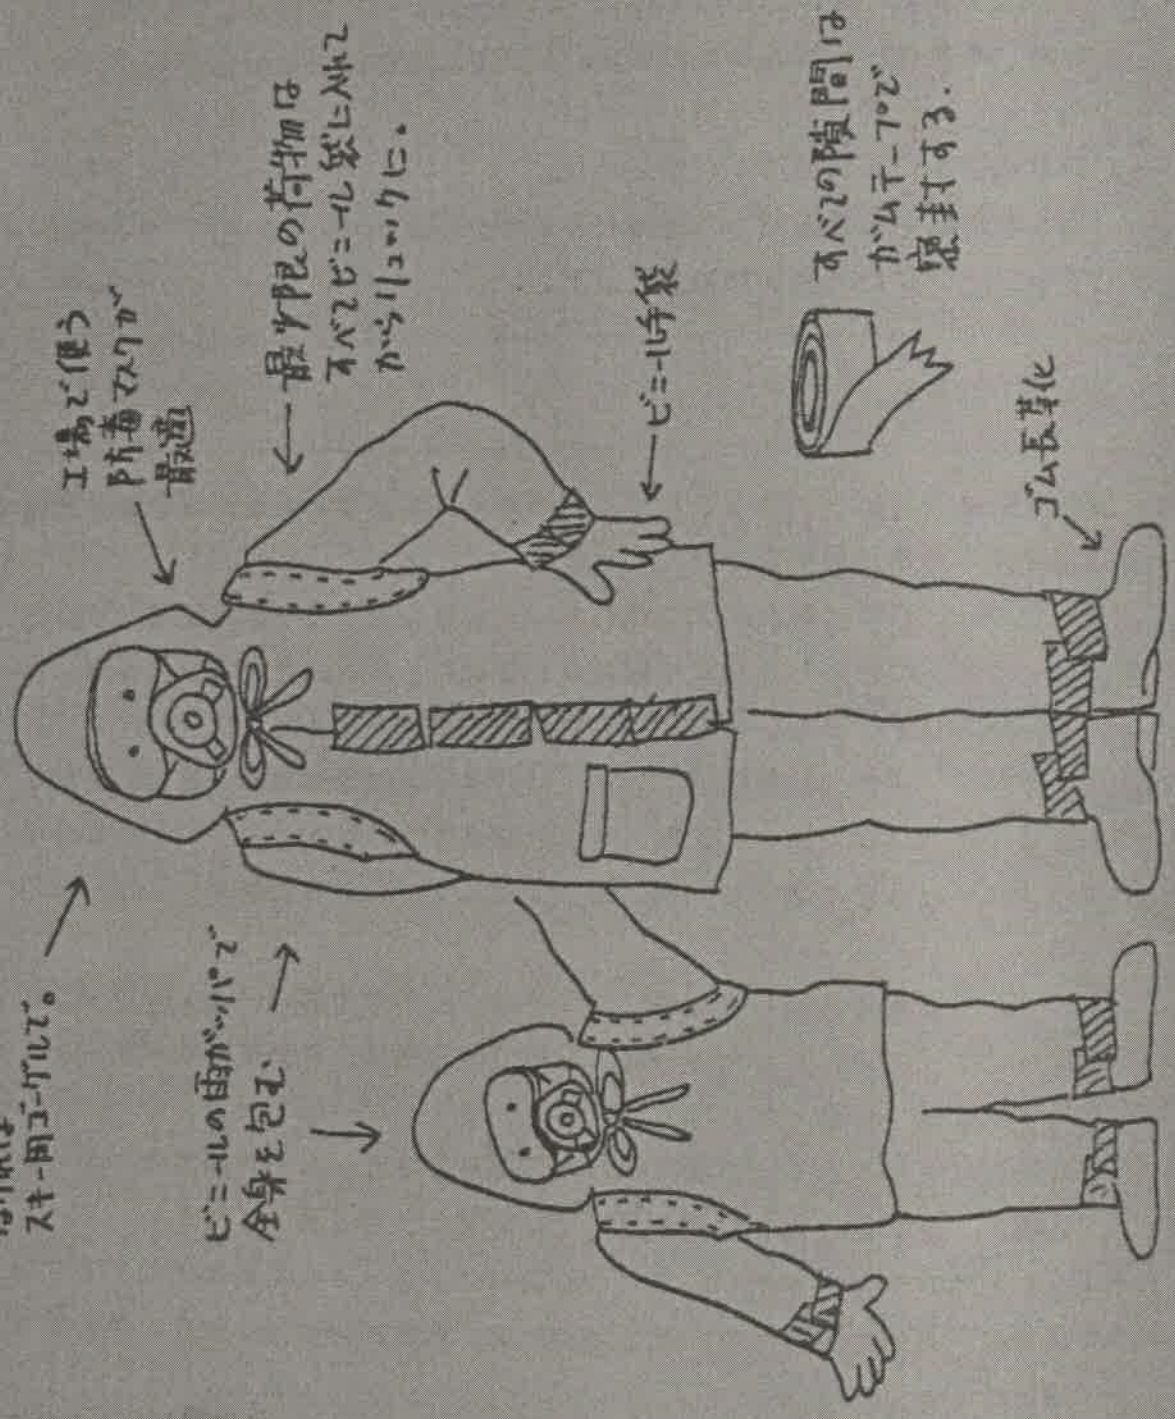 スキー用ゴーグルで。
ビニールの雨ガッパで
全身を包む
工場で使う
防毒マスクが
最適
最少限の荷物は
すべてビニール袋に入れて
からリュックに。
ビニール手袋
すべての隙間は
ガムテープで
密封する.
ゴム長靴